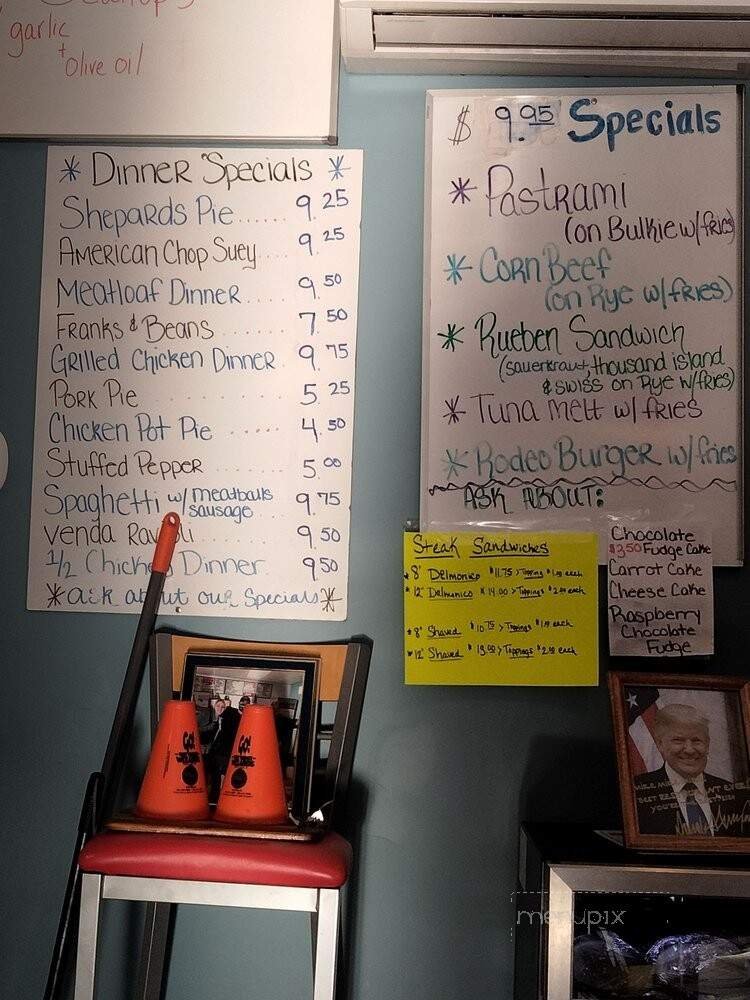 garlic
+
olive oil
* Dinner Specials *
Shepards Pie ...... 9.25
American Chop Suey .... 9.25
Meatloaf Dinner ..... 9.50
Franks & Beans ...... 7.50
Grilled Chicken Dinner . 9.75
Pork Pie ........... 5.25
Chicken Pot Pie ..... 4.50
Stuffed Pepper ...... 5.00
Spaghetti w/ meatballs
sausage 9.75
Venda 9.50
1/2 Chicken Dinner 950
*ask about our Specials*
$ 9.95 Specials
* Pastrami
(on Bulkie w/fries)
* Corn Beef
(on Rye w/fries)
* Rueben Sandwich
(sauerkraut, thousand island
& swiss on Rye w/fries)
* Tuna melt w/ fries
* Rodeo Burger w/fries
ASK ABOUT:
Steak Sandwiches
8" Delmonico $11.75 > Topping each
12" Delmonico $14.00 > Toppings each
* 8" Shaved $10.75 > Toppings each
*12" Shaved > Toppings each
Chocolate
$3.50 Fudge Cake
Carrot Cake
Cheese Cake
Raspberry
Chocolate
Fudge
GO!
GO!
menupix